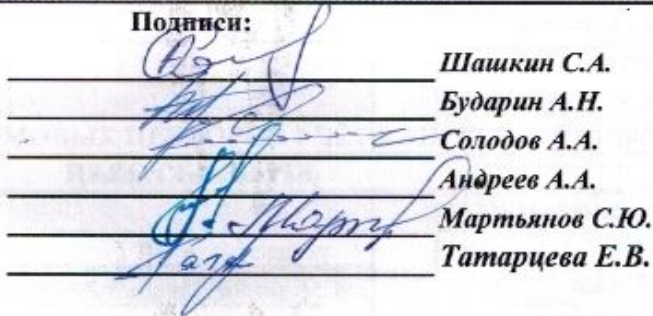 Подписи:
Шашкин С.А.
Бударин А.Н.
Солодов А.А.
Андреев А.А.
Мартьянов С.Ю.
Татарцева Е.В.